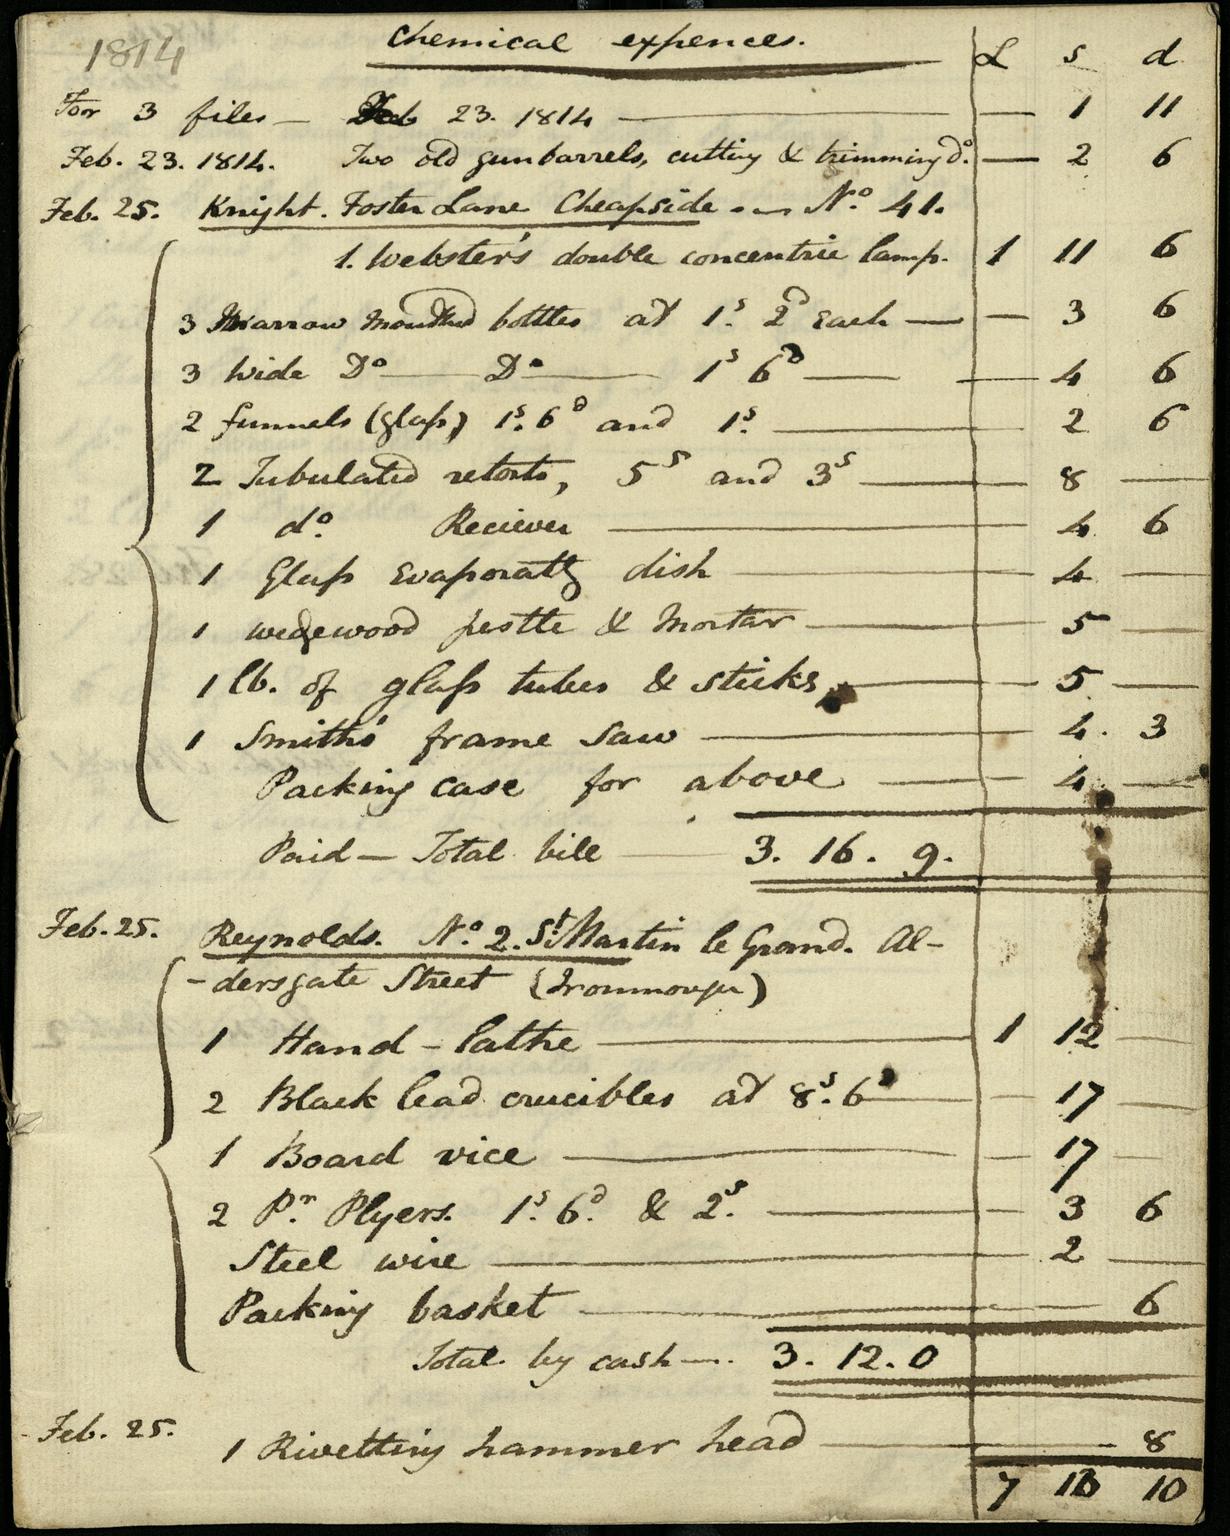 1814
Chemical expences. £ s d
For 3 files — Feb 23. 1814 — — 1 11
Feb. 23. 1814. Two old gunbarrels, cutting & trimming do. — 2 6
Feb. 25. Knight. Foster Lane Cheapside — No. 41.
1. Webster's double concentric lamp. 1 11 6
3 Narrow Mouthed bottles at 1s. 2d Each — — 3 6
3 Wide Do — Do — 1s 6d — — 4 6
2 funnels (glass) 1s. 6d and 1s. — 2 6
2 Tubulated retorts, 5s and 3s — 8 —
1 do. Reciever — 4 6
1 Glass Evaporatg dish — 4 —
1 wedgewood pestle & Mortar — 5 —
1 lb. of glass tubes & sticks, — 5 —
1 Smith's frame Saw — 4. 3
Packing case for above — 4 —
Paid — Total bill — 3. 16. 9.
Feb. 25. Reynolds. No. 2. St. Martin le Grand. Al-
-dersgate Street (Ironmonger)
1 Hand-lathe — 1 12 —
2 Black lead crucibles at 8s. 6d — 17 —
1 Board vice — — 17 —
2 Pr. Plyers. 1s. 6d. & 2s. — — 3 6
Steel wire — 2 —
Packing basket — — 6
Total by cash —. 3. 12. 0
Feb. 25. 1 Rivetting hammer head — — 8
7 13 10